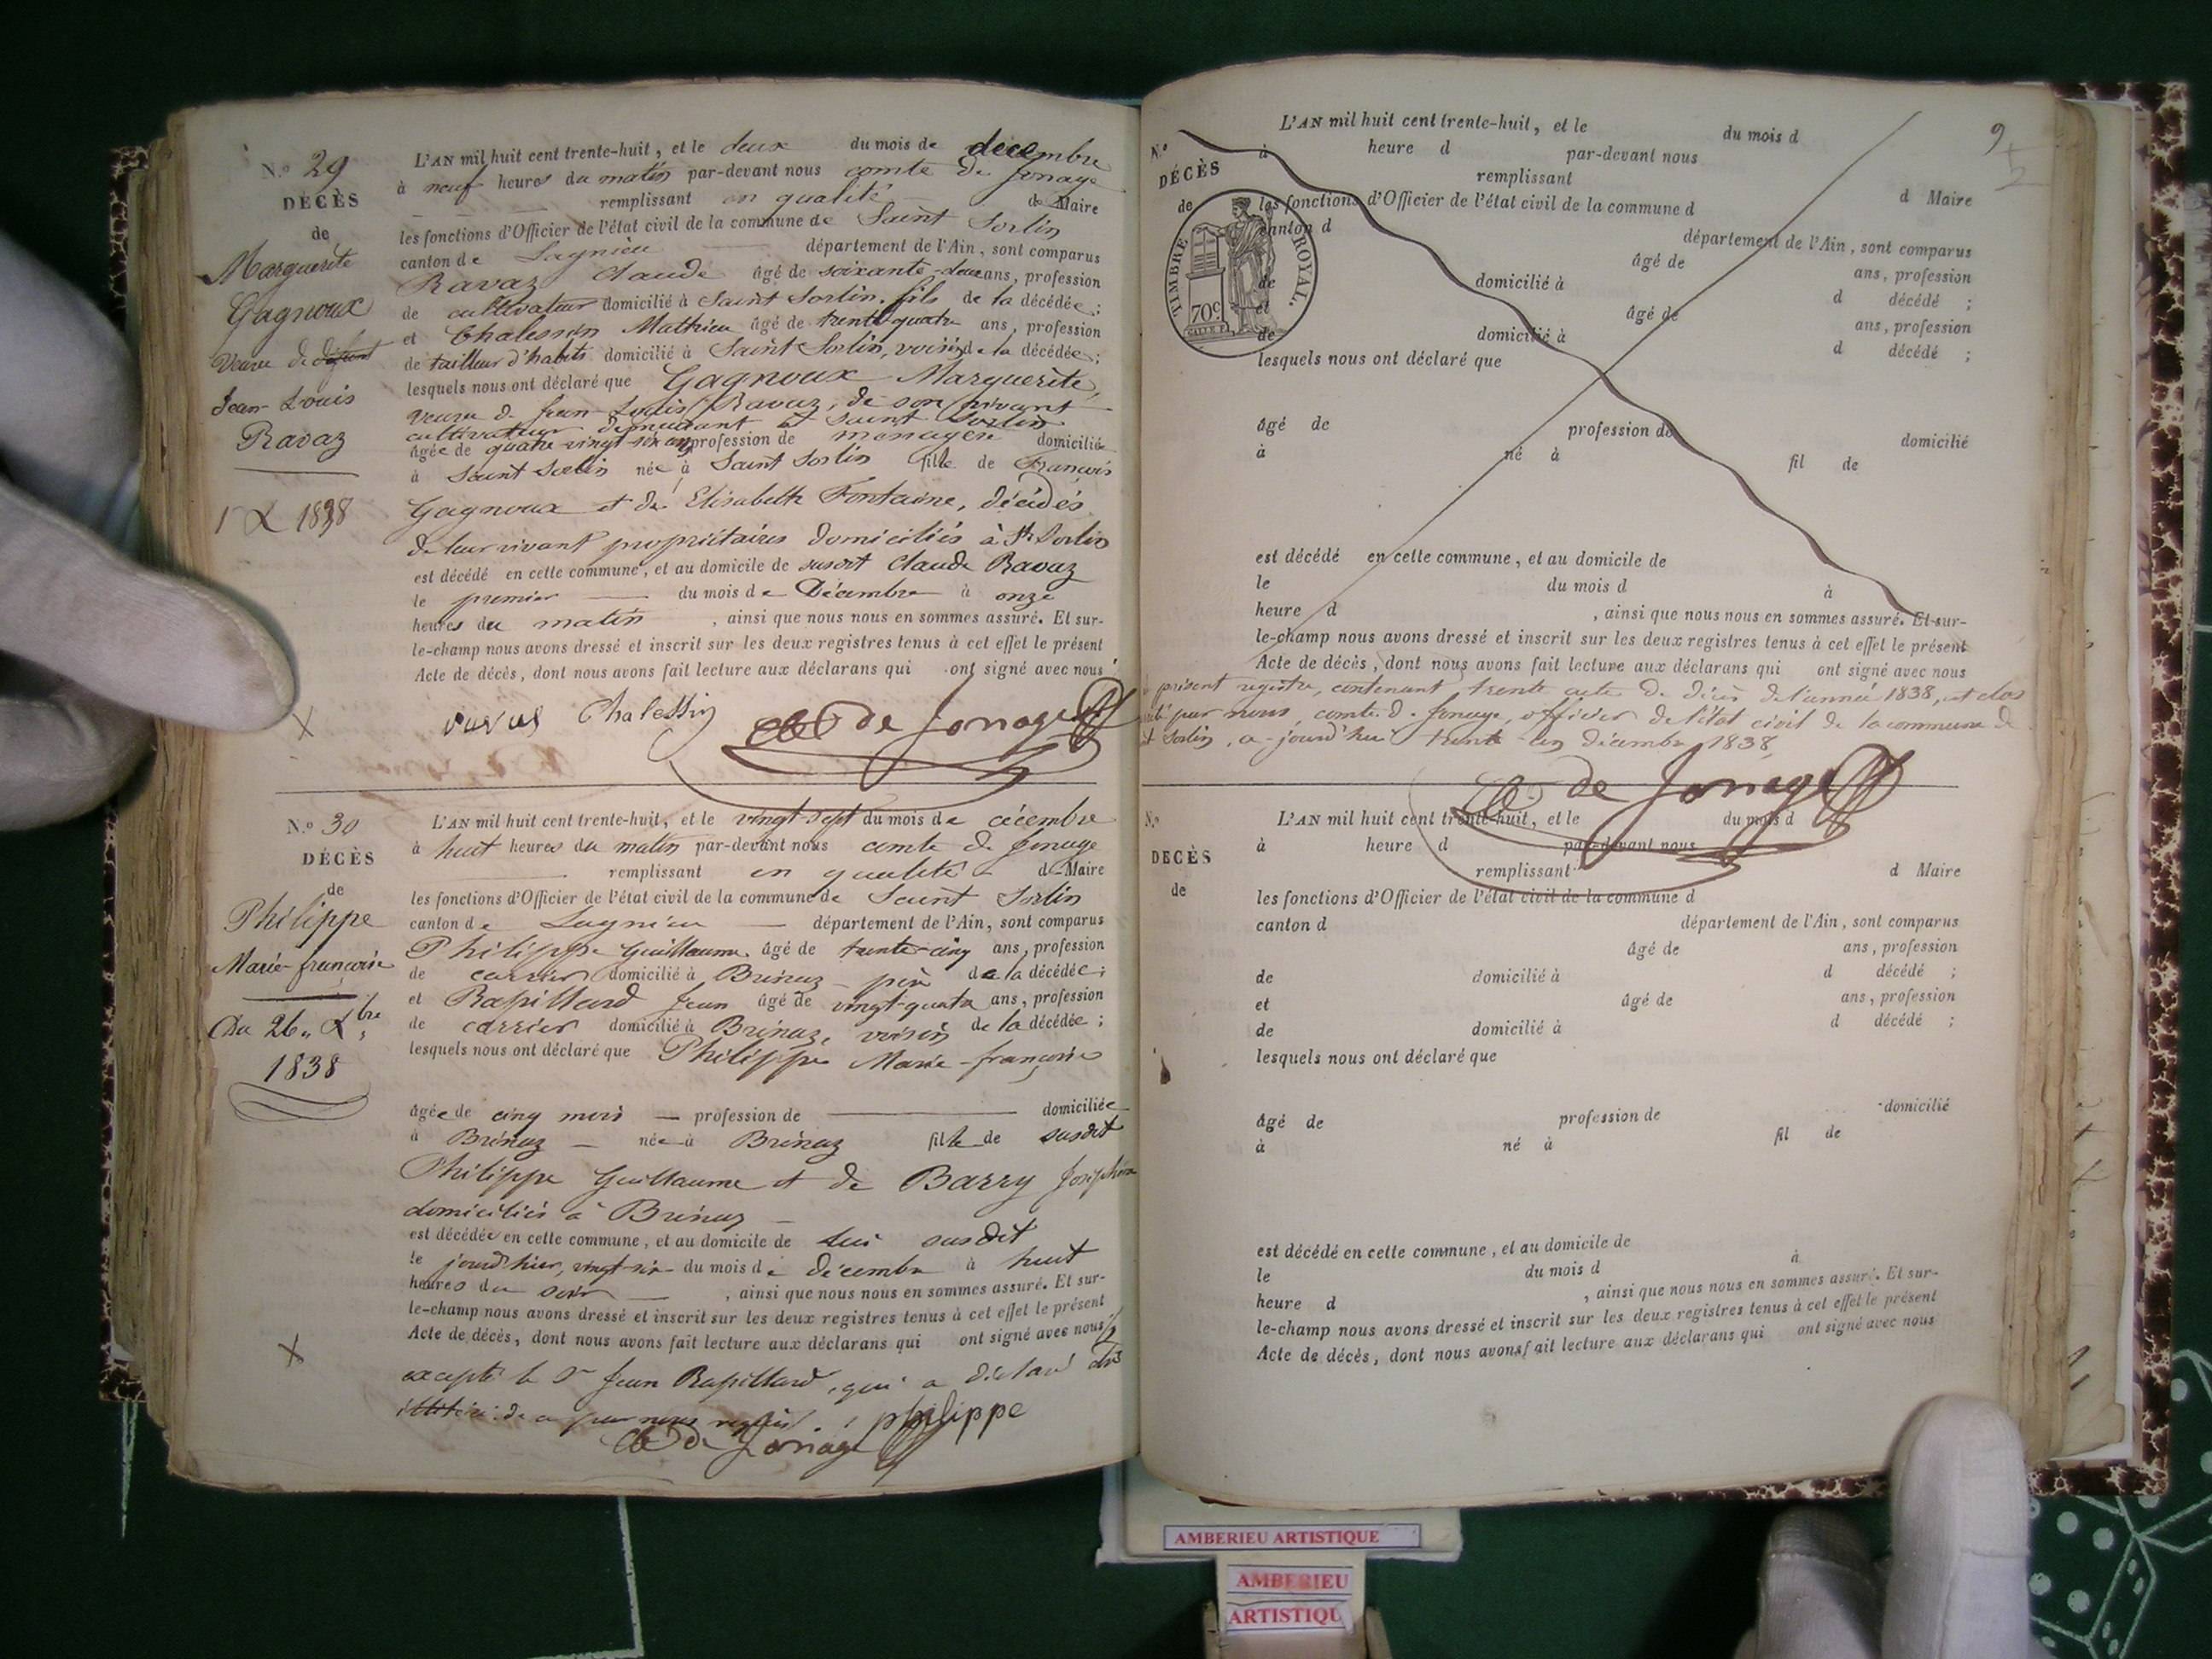 N.º 29
DÉCÈS
de
Marguerite
Gagnoux
Veuve de défunt
Jean-Louis
Ravaz
1 X 1838
L'AN mil huit cent trente-huit, et le deux du mois de décembre
à neuf heures du matin par-devant nous comte de Jonage
remplissant en qualité de Maire
les fonctions d'Officier de l'état civil de la commune de Saint Sorlin
canton de Lagnieu département de l'Ain, sont comparus
Ravaz Claude âgé de soixante-deux ans, profession
de cultivateur domicilié à Saint Sorlin, fils de la décédée;
et Chalessin Mathieu âgé de trente-quatre ans, profession
de tailleur d'habits domicilié à Saint Sorlin, voisin de la décédée;
lesquels nous ont déclaré que Gagnoux Marguerite,
veuve de Jean-Louis Ravaz, de son vivant
cultivateur demeurant à Saint Sorlin
âgée de quatre vingt six ans profession de ménagère domiciliée
à Saint Sorlin née à Saint Sorlin fille de François
Gagnoux et de Elisabeth Fontaine, décédés
de leur vivant propriétaires domiciliés à St Sorlin
est décédé en cette commune, et au domicile de susdit Claude Ravaz
le premier du mois de Décembre à onze
heures du matin, ainsi que nous nous en sommes assuré. Et sur-
le-champ nous avons dressé et inscrit sur les deux registres tenus à cet effet le présent
Acte de décès, dont nous avons fait lecture aux déclarans qui ont signé avec nous
Chalessin de Jonage
N.º 30
DÉCÈS
de
Philippe
Marie-françoise
Du 26 Xbre
1838
L'AN mil huit cent trente-huit, et le vingt-sept du mois de décembre
à huit heures du matin par-devant nous comte de Jonage
remplissant en qualité de Maire
les fonctions d'Officier de l'état civil de la commune de Saint Sorlin
canton de Lagnieu département de l'Ain, sont comparus
Philippe Guillaume âgé de trente-cinq ans, profession
de carrier domicilié à Brénaz père de la décédée;
et Rapillard Jean âgé de vingt-quatre ans, profession
de carrier domicilié à Brénaz, voisin de la décédée;
lesquels nous ont déclaré que Philippe Marie-françoise
âgée de cinq mois profession de domiciliée
à Brénaz née à Brénaz fille de susdit
Philippe Guillaume et de Barry Joséphine
domiciliés à Brénaz
est décédée en cette commune, et au domicile de lui susdit
le jourd'hier, vingt-six du mois de décembre à huit
heures du soir, ainsi que nous nous en sommes assuré. Et sur-
le-champ nous avons dressé et inscrit sur les deux registres tenus à cet effet le présent
Acte de décès, dont nous avons fait lecture aux déclarans qui ont signé avec nous
excepté le Sr Jean Rapillard, qui a déclaré être
illitéré de ce par nous requis. Philippe
de Jonage
9
N.º
DÉCÈS
de
TIMBRE ROYAL.
70c
L'AN mil huit cent trente-huit, et le du mois d
à heure d par-devant nous
remplissant d Maire
les fonctions d'Officier de l'état civil de la commune d
canton d département de l'Ain, sont comparus
âgé de ans, profession
de domicilié à d décédé ;
et âgé de ans, profession
de domicilié à d décédé ;
lesquels nous ont déclaré que
âgé de profession de domicilié
à né à fil de
est décédé en cette commune, et au domicile de
le du mois d à
heure d , ainsi que nous nous en sommes assuré. Et sur-
le-champ nous avons dressé et inscrit sur les deux registres tenus à cet effet le présent
Acte de décès, dont nous avons fait lecture aux déclarans qui ont signé avec nous
présent registre, contenant trente actes de décès de l'année 1838, est clos
par nous, comte de Jonage, officier de l'état civil de la commune de
St Sorlin, a-jourd'hui trente un décembre 1838
de Jonage
N.º
DÉCÈS
de
L'AN mil huit cent trente-huit, et le du mois d
à heure d par-devant nous
remplissant d Maire
les fonctions d'Officier de l'état civil de la commune d
canton d département de l'Ain, sont comparus
âgé de ans, profession
de domicilié à d décédé ;
et âgé de ans, profession
de domicilié à d décédé ;
lesquels nous ont déclaré que
âgé de profession de domicilié
à né à fil de
est décédé en cette commune, et au domicile de
le du mois d à
heure d , ainsi que nous nous en sommes assuré. Et sur-
le-champ nous avons dressé et inscrit sur les deux registres tenus à cet effet le présent
Acte de décès, dont nous avons fait lecture aux déclarans qui ont signé avec nous
AMBERIEU ARTISTIQUE
AMBERIEU
ARTISTIQU